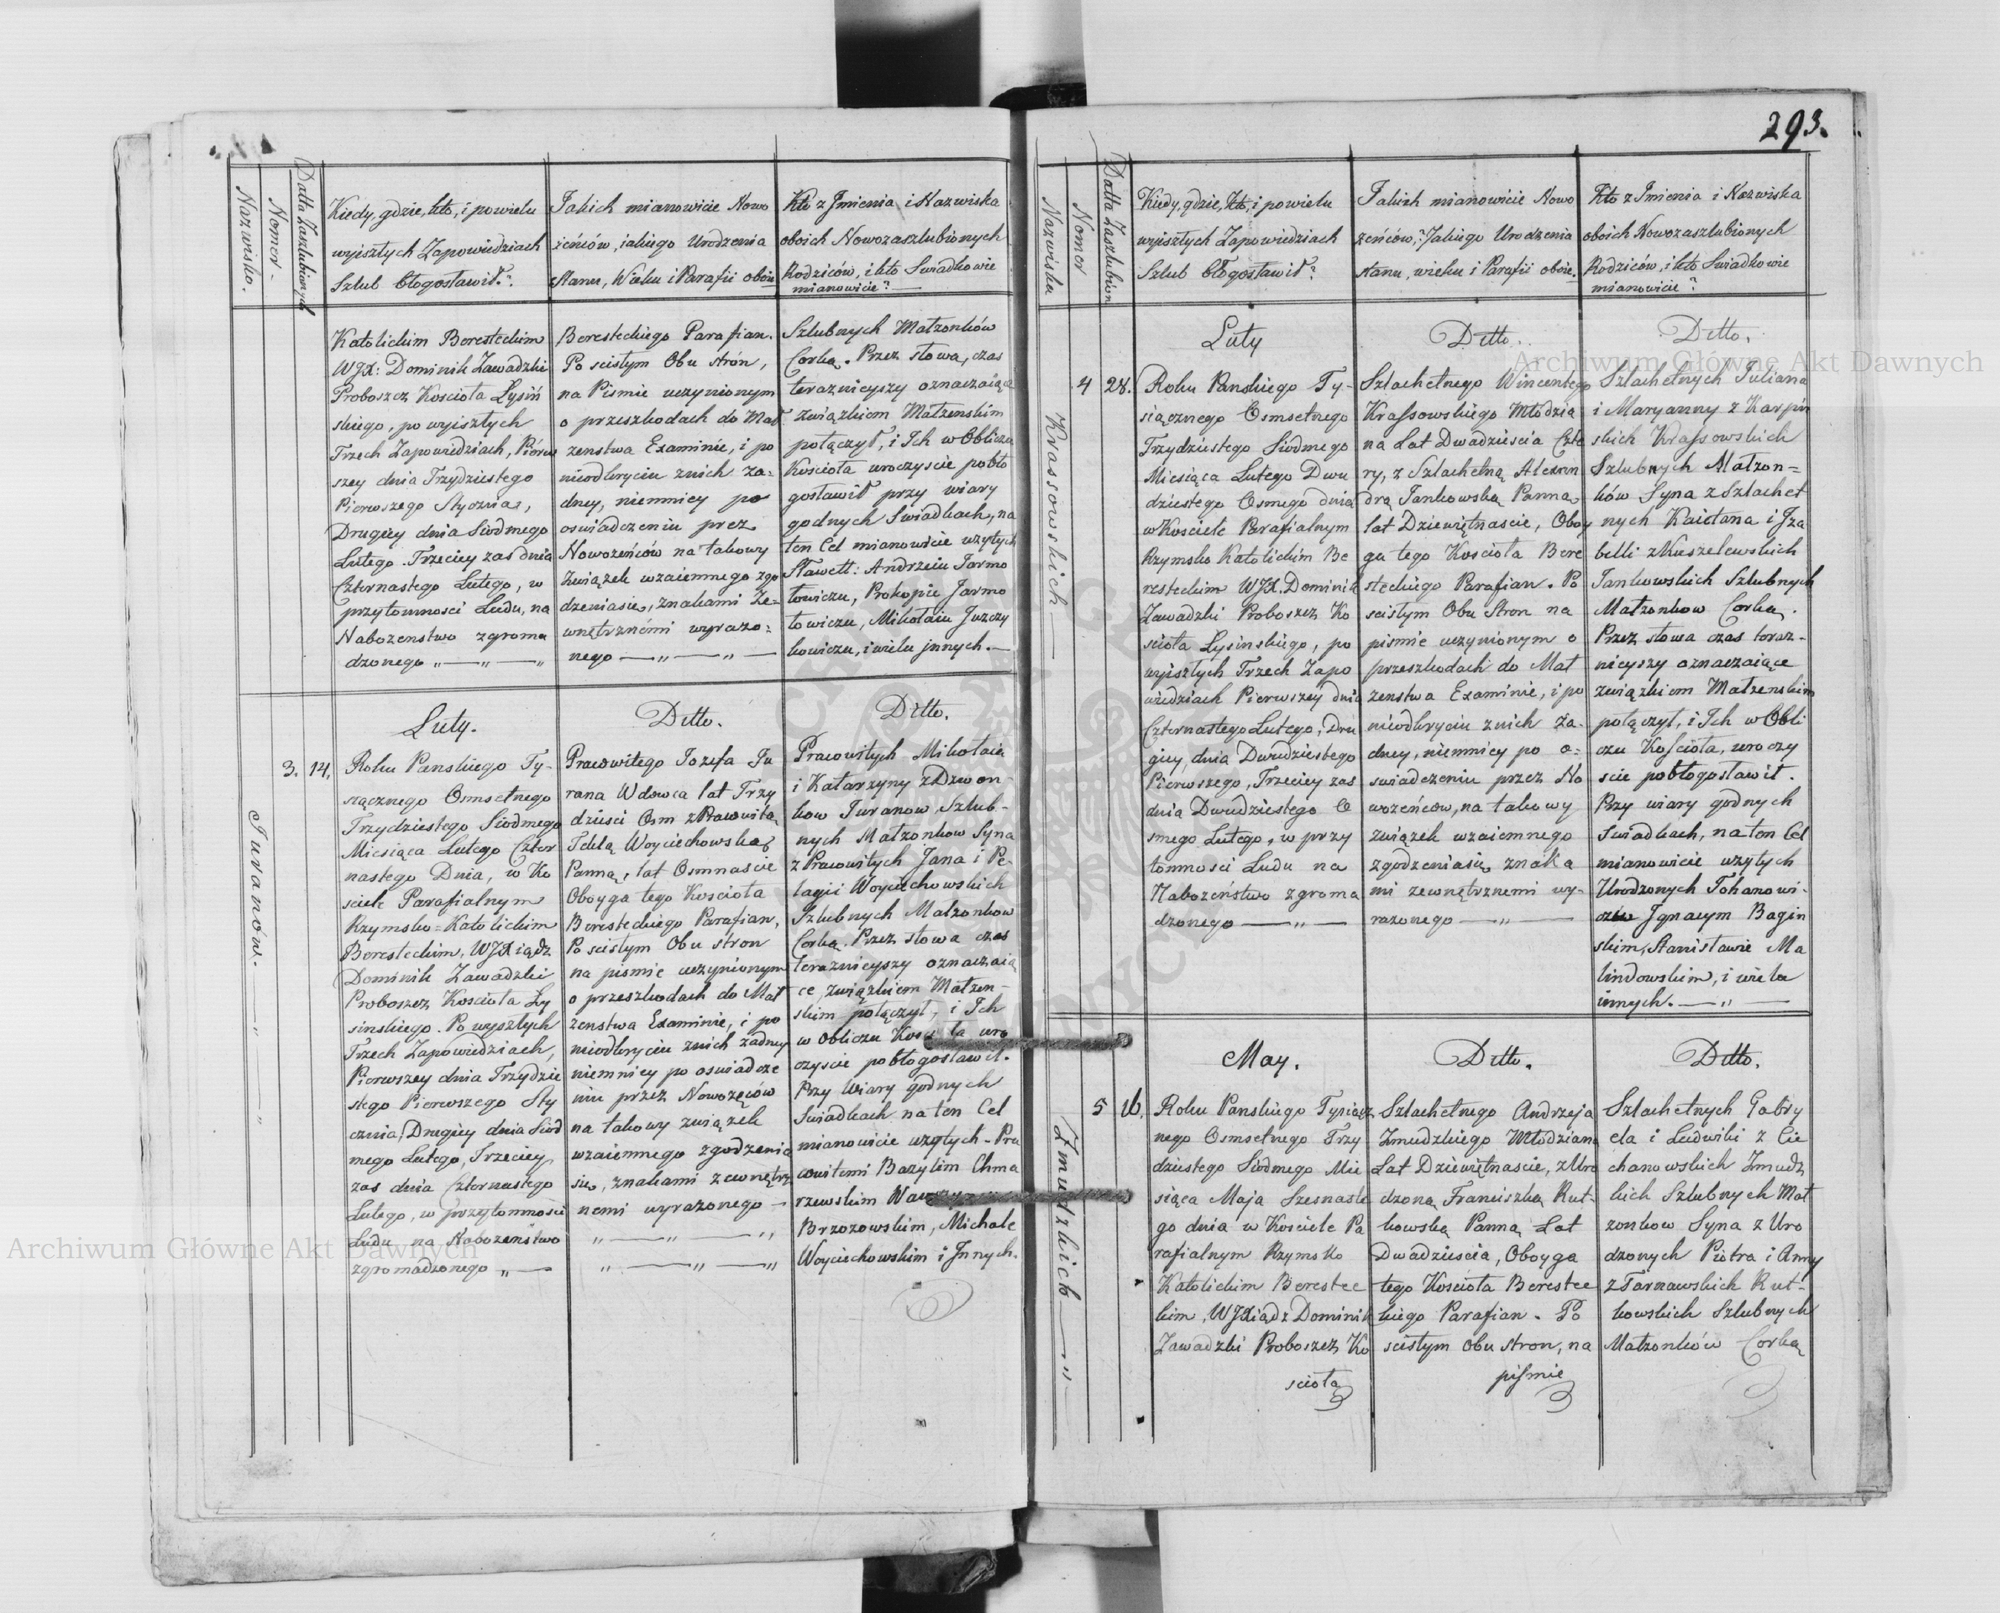 293.
Nazwisko.
Nomer
Datta Zaszlubionych
Kiedy, gdzie, kto, i powielu
wyiszłych Zapowiedziach
Szlub błogosławił?
Jakich mianowicie Nowo
żeńców, iakiego Urodzenia
Stanu, Wieku i Parafii oboie
Kto z Jmienia i Nazwiska
oboich Nowozaszlubionych
Rodziców, i kto Swiadkowie
mianowicie?
Katolickim Beresteckim
WJX: Dominik Zawadzki
Proboszcz Koscioła Łysiń
skiego, po wyiszłych
Trzech Zapowiedziach, Pierw
szey dnia Trzydziestego
Pierwszego Stycznia,
Drugiey dnia Siodmego
Lutego. Trzeciey zas dnia
Czternastego Lutego, w
przytomnosci Ludu, na
Nabożenstwo zgroma
dzonego
Beresteckiego Parafian.
Po scisłym Obu strón,
na Pismie uczynionym
o przeszkodach do Mał
zenstwa Examinie, i po
nieodkryciu znich ża=
dney, niemniey po
oswiadczeniu przez
Nowożeńców na takowy
Związek wzaiemnego zgo
dzeniasię, znakami Ze=
wnętrznémi wyrażo=
nego
Szlubnych Małzonków
Corką. Przez słowa, czas
teraznieyszy oznaczaiące
związkiem Małzenskim
połączył, i Ich w Obliczu
Kościoła uroczyscie pobło
gosławił przy wiary
godnych Swiadkach, na
ten Cel mianowicie użytych
Sławett: Andrzeiu Jarmo
łowiczu, Prokopie Jarmo
łowiczu, Mikołaiu Juzczy
kowiczu, i wielu jnnych.
Turanów.
3. 14.
Luty.
Roku Panskiego Ty-
siącznego Osmsetnego
Trzydziestego Siodmego
Miesiąca Lutego Czter
nastego Dnia, w Ko
sciele Parafialnym
Rzymsko=Katolickim
Beresteckim, WJXiądz
Dominik Zawadzki
Proboszcz Kosciola Ły
sinskiego. Po wyszłych
Trzech Zapowiedziach,
Pierwszey dnia Trzydzie
stego Pierwszego Sty
cznia, Drugiey dnia Siod
mego Lutego, Trzeciey
zas dnia Czternastego
Lutego, w przytomnosci
Ludu na Nabozenstwo
zgromadzonego
Ditto.
Pracowitego Jozefa Tu
rana Wdowca lat Trzy
dziesci Osm z Pracowitą
Teklą Woyciechowską
Panną, lat Osmnascie
Oboyga tego Kosciola
Beresteckiego Parafian,
Po scisłym Obu stron
na pismie uczynionym
o przeszkodach do Mał
zenstwa Examinie, i po
nieodkryciu znich żadney
niemniey po oswiadcze
niu przez Nowożęców
na takowy związek
wzaiemnego zgodzenia
się, znakami zewnętrz
nemi wyrazonego
Ditto.
Pracowitych Mikołaia
i Katarzyny z Dzwon-
kow Turanow Szlub-
nych Małzonkow Syna
z Pracowitych Jana i Pe-
lagii Woyciechowskich
Szlubnych Małzonkow
Corką. Przez słowa czas
teraznieyszy oznaczaią
ce, związkiem Małzen-
skim połączył, i Ich
w Obliczu Koscioła uro
czyscie pobłogosławił.
Przy Wiary godnych
Swiadkach na ten Cel
mianowicie użytych - Pra
cowitemi Bazylim Chma
rzewskim
Brzozowskim, Michale
Woyciechowskim i Jnnych.
Nazwiska
Nomer
Datta Zaszlubion
Kiedy, gdzie, Kto, i powielu
wyiszłych Zapowiedziach
Szlub błogosławił?
Jakich mianowicie Nowo
żeńców,? Jakiego Urodzenia
stanu, wieku i Parafii oboie
Kto z Jmienia i Nazwiska
oboich Nowozaszlubionych
Rodziców, i kto Swiadkowie
mianowicie?
Krassowskich
4 28.
Luty
Roku Panskiego Ty-
siącznego Osmsetnego
Trzydziestego Siodmego
Miesiąca Lutego Dwu
dziestego Osmego dnia
w Kosciele Parafialnym
Rzymsko Katolickim Be
resteckim WJX. Dominik
Zawadzki Proboszcz Ko
scioła Łysinskiego, po
wyiszłych Trzech Zapo
wiedziach Pierwszey dnia
Czternastego Lutego, Dru
giey dnia Dwudziestego
Pierwszego, Trzeciey zas
dnia Dwudziestego O
smego Lutego, w przy
tomnosci Ludu na
Nabożeństwo zgroma
dzonego
Ditto.
Szlachetnego Wincentego
Krassowskiego Młodzia
na Lat Dwadziescia Czte
ry, z Szlachetną Alexan
drą Jankowską Panną
lat Dziewiętnascie, Oboy
ga tego Kosciola Bere
steckiego Parafian. Po
scisłym Obu Stron na
pismie uczynionym o
przeszkodach do Mał
zenstwa Examinie, i po
nieodkryciu znich ża-
dney, niemniey po o=
swiadczeniu przez No
wożeńców, na takowy
związek wzaiemnego
zgodzeniasię, znaka
mi zewnętrznemi wy-
razonego
Ditto.
Szlachetnych Juliana
i Maryanny z Karpin
skich Krassowskich
Szlubnych Małzon=
ków Syna z Szlachet
nych Kaietana i Jza
belli z Kuszelewskich
Jankowskich Szlubnych
Małzonkow Corką.
Przez słowa czas teraz-
nieyszy oznaczaiące
związkiem Małzenskim
połączył, i Ich w Obli
czu Kościoła, uroczy
scie pobłogosławił.
Przy wiary godnych
Swiadkach, na ten Cel
mianowicie użytych
Urodzonych
Jgnacym Bagin
skim, Stanisławie Ma
lindowskim, i wielu
innych.
Zmudzkich
5 16.
May.
Roku Panskiego Tysiącz
nego Osmsetnego Trzy
dziestego Siodmego Mie
siąca Maja Szesnaste
go dnia w Kosciele Pa
rafialnym Rzymsko
Katolickim Berestec
kim, WJXiądz Dominik
Zawadzki Proboszcz Ko
scioła
Ditto.
Szlachetnego Andrzeja
Zmudzkiego Młodziana
Lat Dziewiętnascie, z Uro
dzoną Franciszką Rut-
kowską Panną Lat
Dwadziescia, Oboyga
tego Kosciola Berestec
kiego Parafian. Po
scisłym Obu stron, na
piśmie
Ditto.
Szlachetnych Gabry
ela i Ludwiki z Cie
chanowskich Zmudz
kich Szlubnych Mał
zonkow Syna z Uro
dzonych Piotra i Anny
z Tarnawskich Rut-
kowskich Szlubnych
Małzonków Corką
Archiwum Główne Akt Dawnych
Archiwum Główne Akt Dawnych